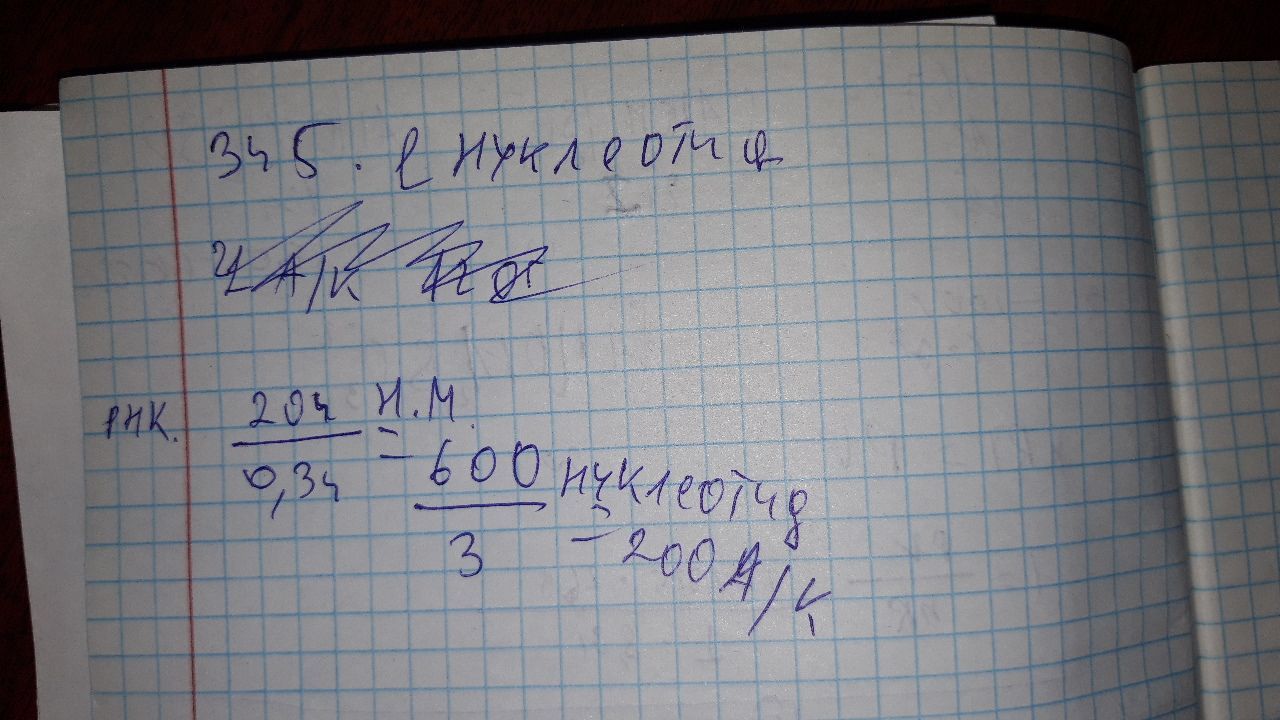 345. l нуклеотид
РНК. 204 н.м.
0,34
= 600 нуклеотид
3
= 200 А/К